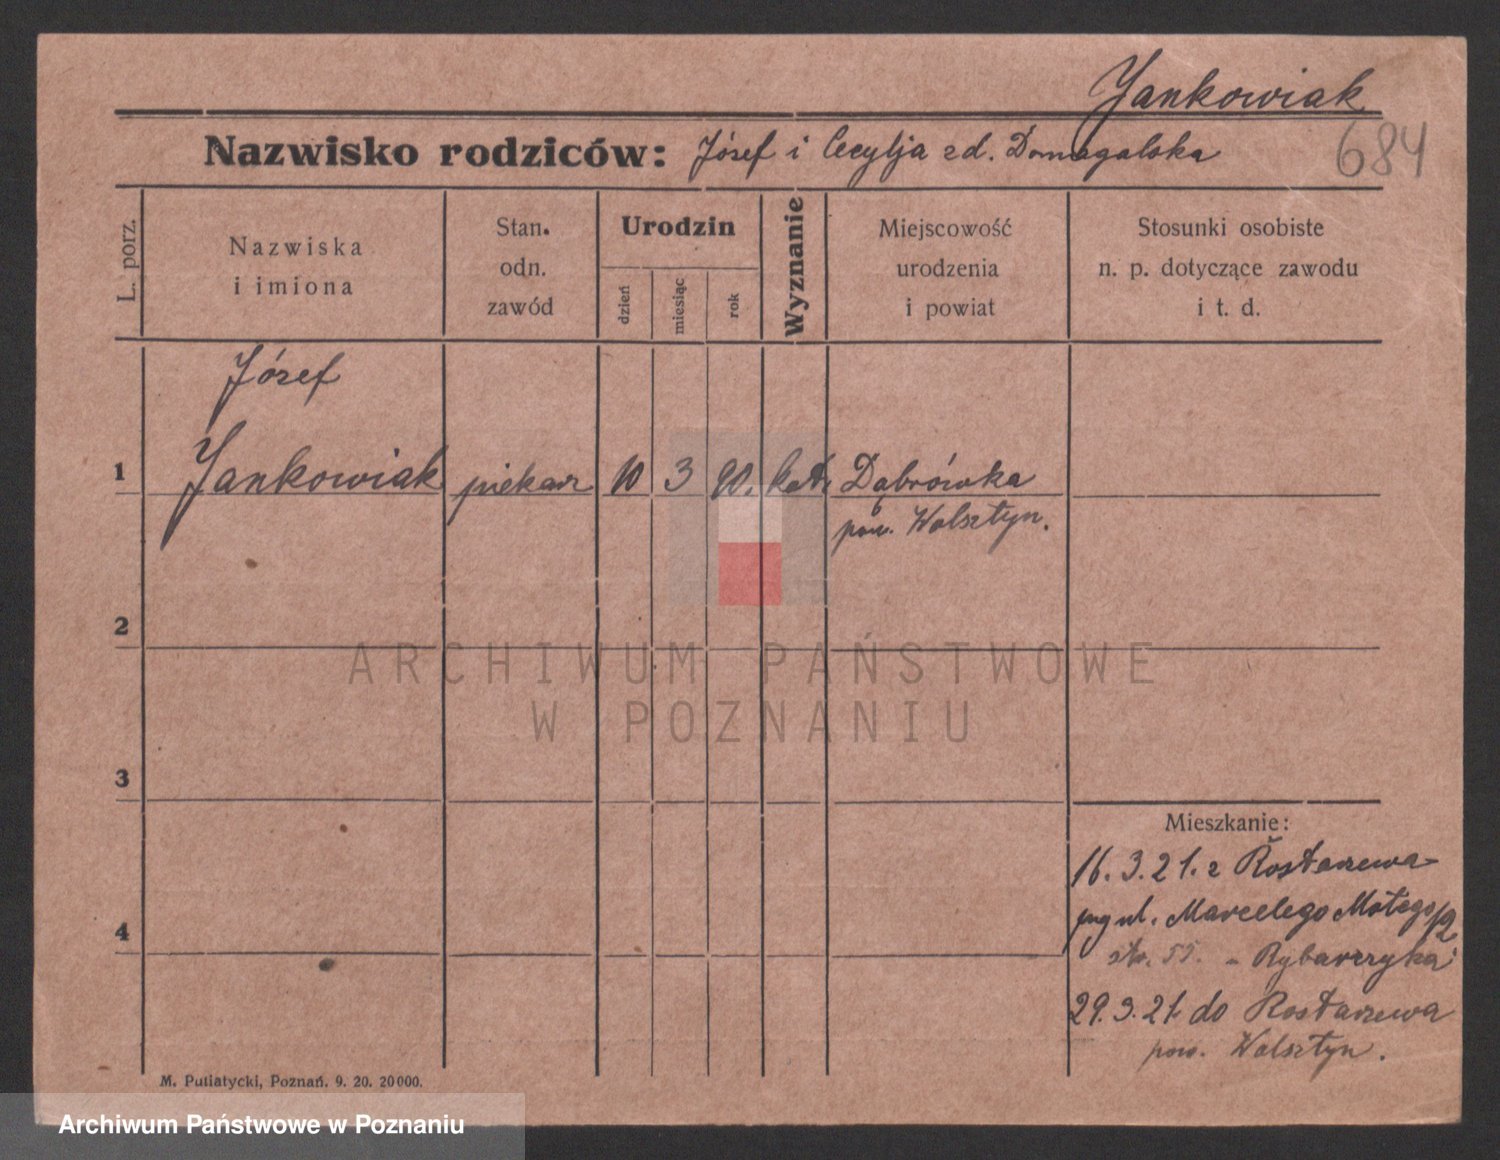 Jankowiak
684
Nazwisko rodziców: Józef i Cecylja zd. Domagalska
L. porz.
Nazwiska
i imiona
Stan.
odn.
zawód
Urodzin
dzień
miesiąc
rok
Wyznanie
Miejscowość
urodzenia
i powiat
Stosunki osobiste
n. p. dotyczące zawodu
i t. d.
Józef
1 Jankowiak piekarz 10 3 90. kat. Dąbrówka
pow. Wolsztyn.
2
ARCHIWUM PAŃSTWOWE
W POZNANIU
3
Mieszkanie:
16.3.21. z Rostarzewa
ul. Marcelego Mottego
4
Rybarczyka
29.3.21 do Rostarzewa
pow. Wolsztyn.
M. Putiatycki, Poznań. 9. 20. 20000.
Archiwum Państwowe w Poznaniu